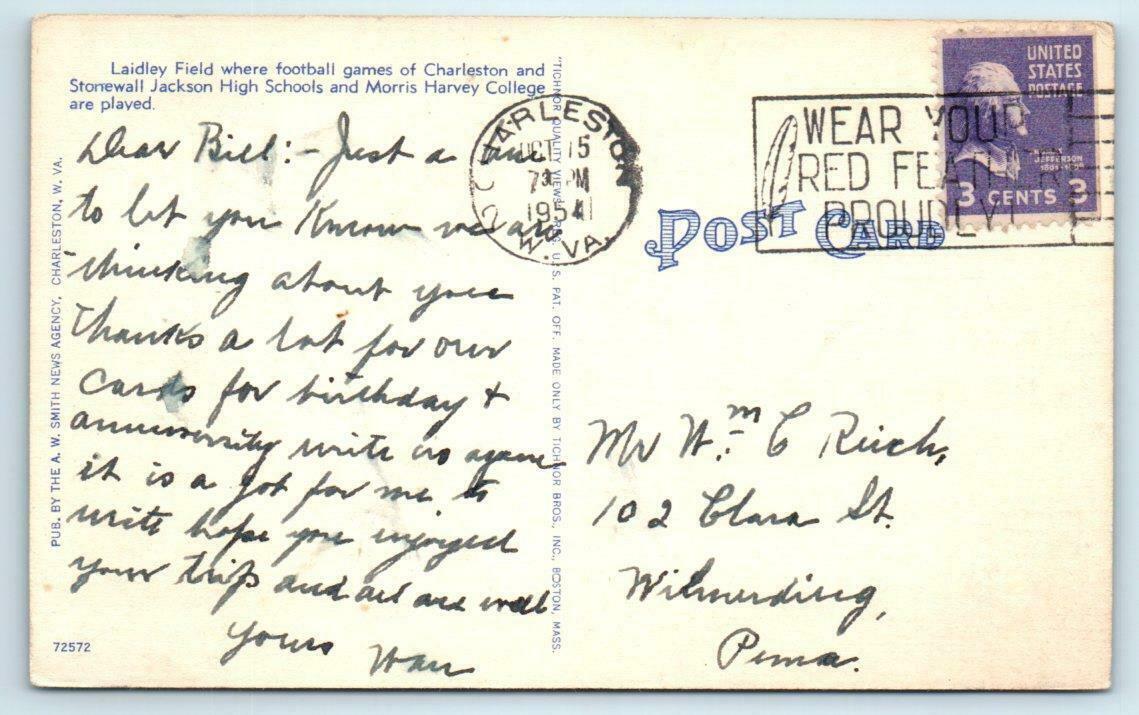 Laidley Field where football games of Charleston and
Stonewall Jackson High Schools and Morris Harvey College
are played.
Dear Bill:- Just a line
to let you Know we are
thinking about you
Thanks a lot for our
Cards for birthday &
anniversity write us again
it is a job for me to
write hope you enjoyed
your trip and all are well
yours
PUB. BY THE A. W. SMITH NEWS AGENCY, CHARLESTON, W. VA.
72572
"TICHNOR QUALITY VIEWS" REG. U. S. PAT. OFF. MADE ONLY BY TICHNOR BROS., INC., BOSTON, MASS.
CHARLESTON
OCT 15
7 30 PM
1954
W. VA.
WEAR YOUR
RED FEATHER
PROUDLY!
UNITED
STATES
POSTAGE
3 CENTS 3
POST CARD
Mr Wm C Reich,
102 Clara St.
Wilmerding,
Penna.